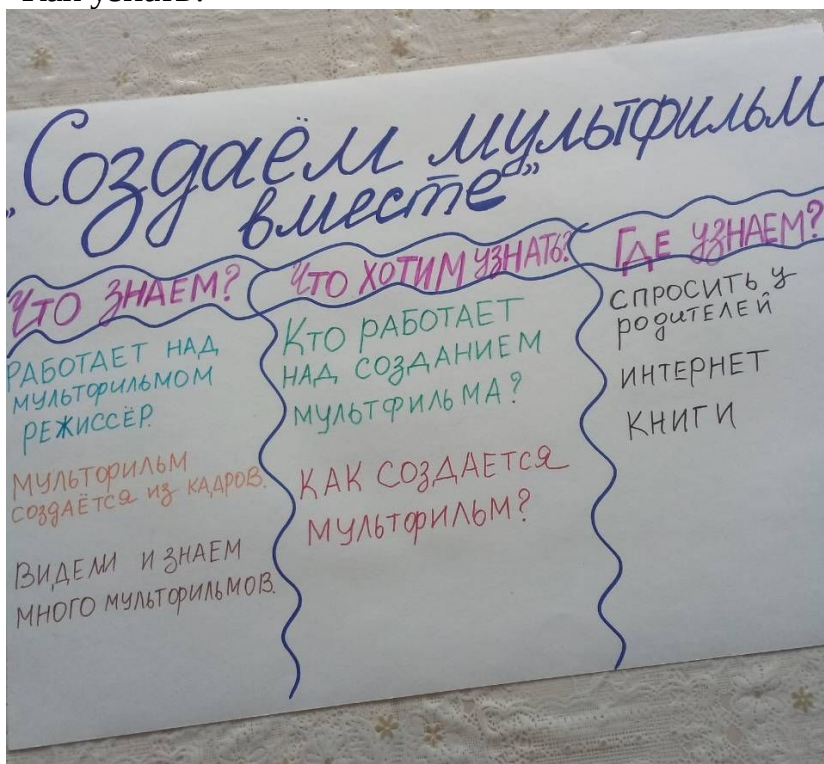 „Создаём мультфильм
вместе"
Что знаем?
Работает над
мультфильмом
режиссёр.
Мультфильм
создаётся из кадров.
Видели и знаем
много мультфильмов.
Что хотим узнать?
Кто работает
над созданием
мультфильма?
Как создается
мультфильм?
Где узнаем?
Спросить у
родителей
Интернет
Книги